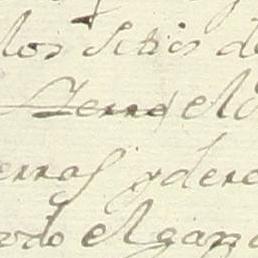 los Sitios de
Sierra el
erras y dere
odo el gana